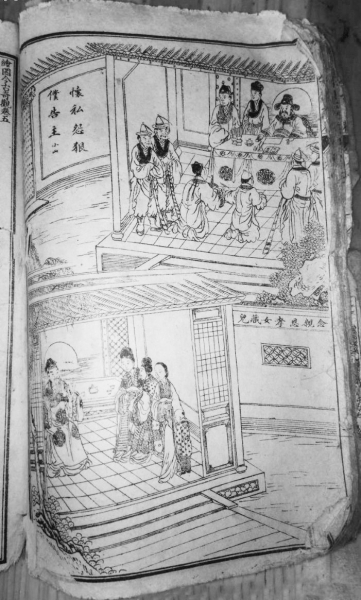 懷私怨狠
僕告主
念親恩孝女藏兒
繪圖今古奇觀卷五